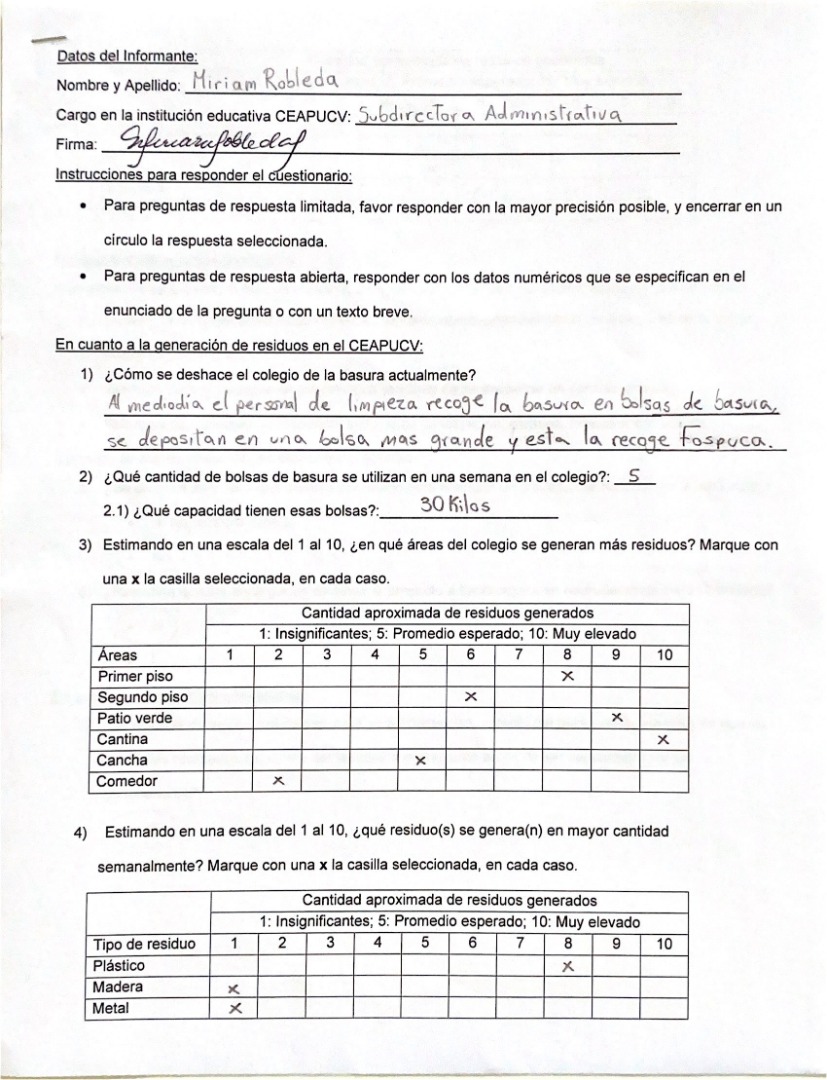 Datos del Informante:
Nombre y Apellido: Miriam Robleda
Cargo en la institución educativa CEAPUCV: Subdirectora Administrativa
Firma:
Instrucciones para responder el cuestionario:
• Para preguntas de respuesta limitada, favor responder con la mayor precisión posible, y encerrar en un
círculo la respuesta seleccionada.
• Para preguntas de respuesta abierta, responder con los datos numéricos que se especifican en el
enunciado de la pregunta o con un texto breve.
En cuanto a la generación de residuos en el CEAPUCV:
1) ¿Cómo se deshace el colegio de la basura actualmente?
Al mediodía el personal de limpieza recoge la basura en bolsas de basura,
se depositan en una bolsa mas grande y esta la recoge Fospuca.
2) ¿Qué cantidad de bolsas de basura se utilizan en una semana en el colegio?: 5
2.1) ¿Qué capacidad tienen esas bolsas?: 30 Kilos
3) Estimando en una escala del 1 al 10, ¿en qué áreas del colegio se generan más residuos? Marque con
una x la casilla seleccionada, en cada caso.
Cantidad aproximada de residuos generados
1: Insignificantes; 5: Promedio esperado; 10: Muy elevado
Áreas 1 2 3 4 5 6 7 8 9 10
Primer piso x
Segundo piso x
Patio verde x
Cantina x
Cancha x
Comedor x
4) Estimando en una escala del 1 al 10, ¿qué residuo(s) se genera(n) en mayor cantidad
semanalmente? Marque con una x la casilla seleccionada, en cada caso.
Cantidad aproximada de residuos generados
1: Insignificantes; 5: Promedio esperado; 10: Muy elevado
Tipo de residuo 1 2 3 4 5 6 7 8 9 10
Plástico x
Madera x
Metal x